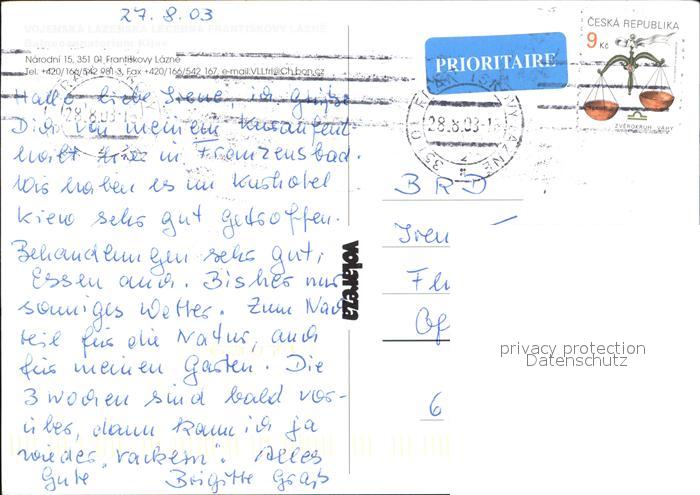 27.8.03
VOJENSKÁ LÁZEŇSKÁ LÉČEBNA FRANTIŠKOVY LÁZNĚ
Národní 15, 351 01 Františkovy Lázně
Tel. +420/166/542 981-3, Fax +420/166/542 167, e-mail:VLLfrl@Ch.bon.cz
Hallo liebe Irene, ich grüße
Dich von meinem Kuraufent-
halt hier in Franzensbad.
Wir haben es im Kurhotel
Kiew sehr gut getroffen.
Behandlungen sehr gut,
Essen auch. Bisher nur
sonniges Wetter. Zum Nach
teil für die Natur, auch
für meinen Garten. Die
3 Wochen sind bald vor-
über, dann kann ich ja
wieder "rackern". Alles
Gute Brigitte
volareza
PRIORITAIRE
ČESKÁ REPUBLIKA
9 Kč
ZVĚROKRUH - VÁHY
28.8.03
28.8.03
BRD
Iren
Fl
Of
6
privacy protection
Datenschutz